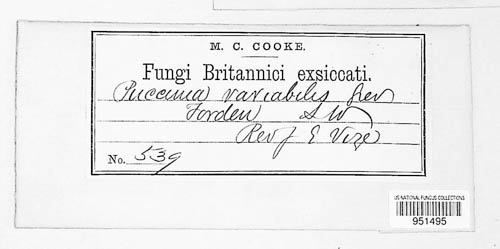 M. C. COOKE.
Fungi Britannici exsiccati.
Puccinia variabilis Grev
Forden
Rev J E Vize
No. 539
US NATIONAL FUNGUS COLLECTIONS
951495